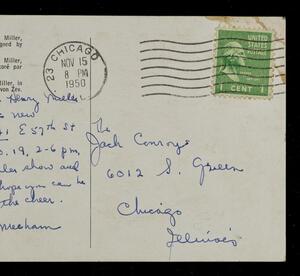 Miller,
gned by
Miller,
coré par
Miller, in
von Zev.
23 CHICAGO
NOV 15
8 PM
1950
UNITED STATES
POSTAGE
1 CENT 1
Henry Miller
s new
E 57th St
19, 2-6 p.m,
show and
hope you can be
the cheer.
The
Jack Conroys
6012 S. Green
Chicago
Illinois